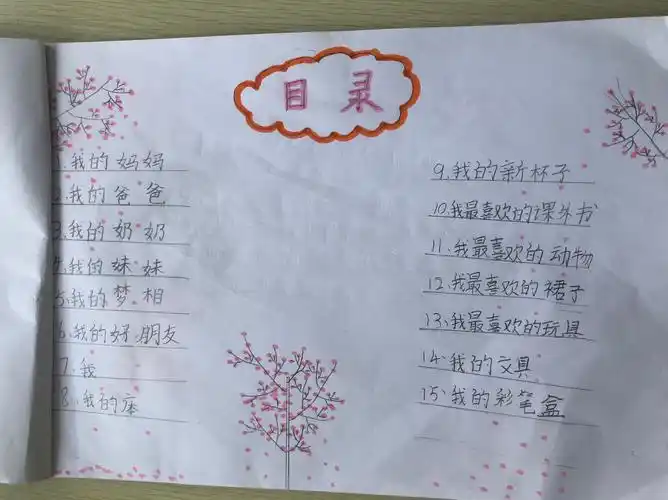 目录
1.我的妈妈
2.我的爸爸
3.我的奶奶
4.我的妹妹
5.我的梦相
6.我的好朋友
7.我
8.我的床
9.我的新杯子
10.我最喜欢的课外书
11.我最喜欢的动物
12.我最喜欢的裙子
13、我最喜欢的玩具
14.我的文具
15、我的彩笔盒